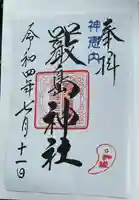 奉拝
神恵内
嚴島神社
令和四年七月十一日